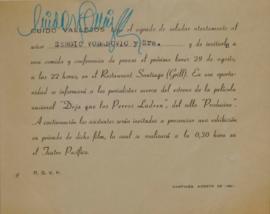 GUIDO VALLEJOS tiene el agrado de saludar atentamente al
señor SERGIO VODANOVIC y Sra. y de invitarlo a
una comida y conferencia de prensa el próximo lunes 29 de agosto,
a las 22 horas, en el Restaurant Santiago (Grill). En esa oportu-
nidad se informará a los periodistas acerca del estreno de la película
nacional "Deja que los Perros Ladren", del sello "Producine".
A continuación los asistentes serán invitados a presenciar una exhibición
en privado de dicho film, la cual se realizará a la 0,30 hora en el
Teatro Pacífico.
R. S. V. P.
SANTIAGO, AGOSTO DE